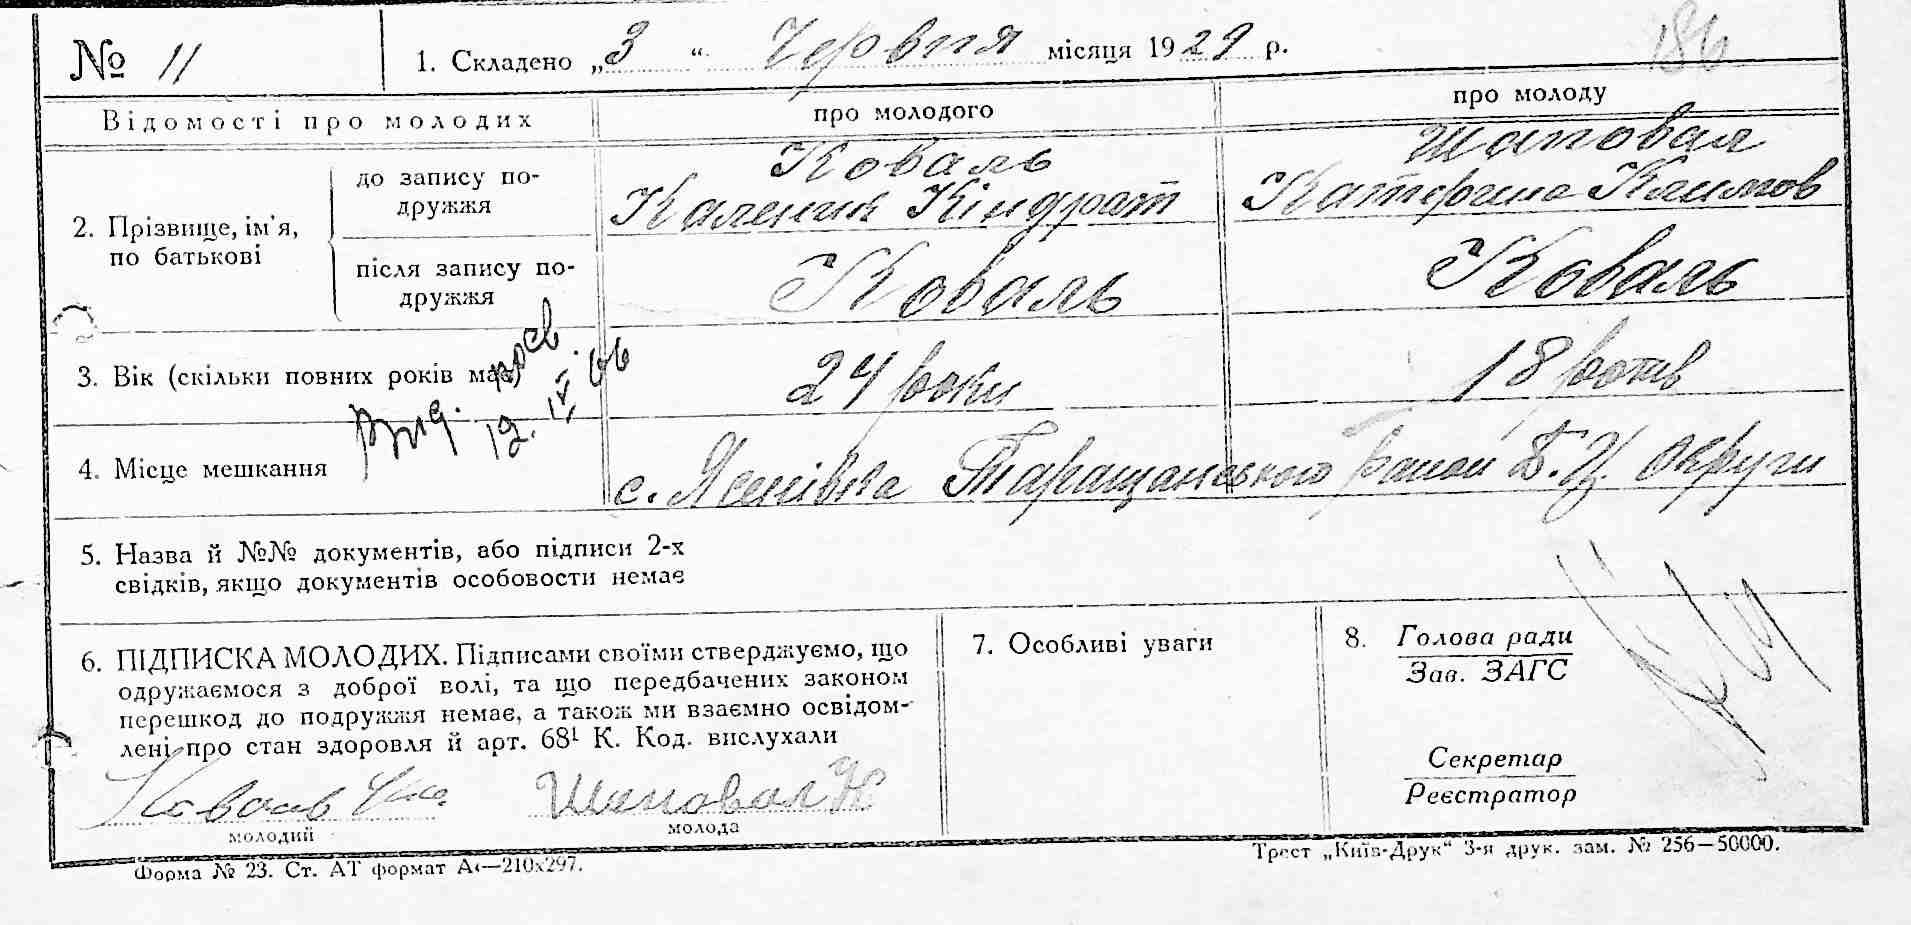 № 11
1. Складено „3“ Червня місяця 1929 р.
186
Відомості про молодих
про молодого
про молоду
2. Прізвище, ім'я,
по батькові
до запису по-
дружжя
Коваль
Каленик Кіндрат
Шаповал
Катерина Климов
після запису по-
дружжя
Коваль
Коваль
3. Вік (скільки повних років має)
24 роки
18 років
12. IV. 66
4. Місце мешкання
с. Лешівка Таращанського район Б.Ц. Округи
5. Назва й №№ документів, або підписи 2-х
свідків, якщо документів особовости немає
6. ПІДПИСКА МОЛОДИХ. Підписами своїми стверджуємо, що
одружаємося з доброї волі, та що передбачених законом
перешкод до подружжя немає, а також ми взаємно освідом-
лені про стан здоровля й арт. 68¹ К. Код. вислухали
Коваль
молодий
Шаповал К
молода
7. Особливі уваги
8. Голова ради
Зав. ЗАГС
Секретар
Реєстратор
Форма № 23. Ст. АТ формат А4—210х297.
Трест „Київ-Друк“ 3-я друк. зам. № 256—50000.